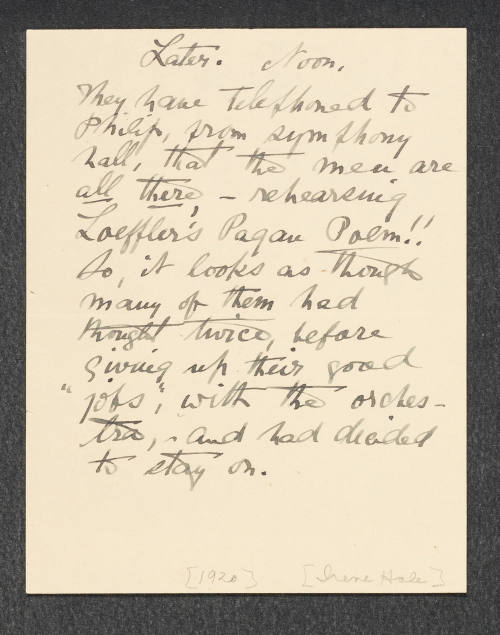 Later. Noon.
They have telephoned to
Philip, from symphony
hall, that the men are
all there, - rehearsing
Loeffler's Pagan Poem!!
So, it looks as though
many of them had
thought twice, before
giving up their good
"jobs", with the orches-
tra, - and had decided
to stay on.
[1920] [Irene Hale]